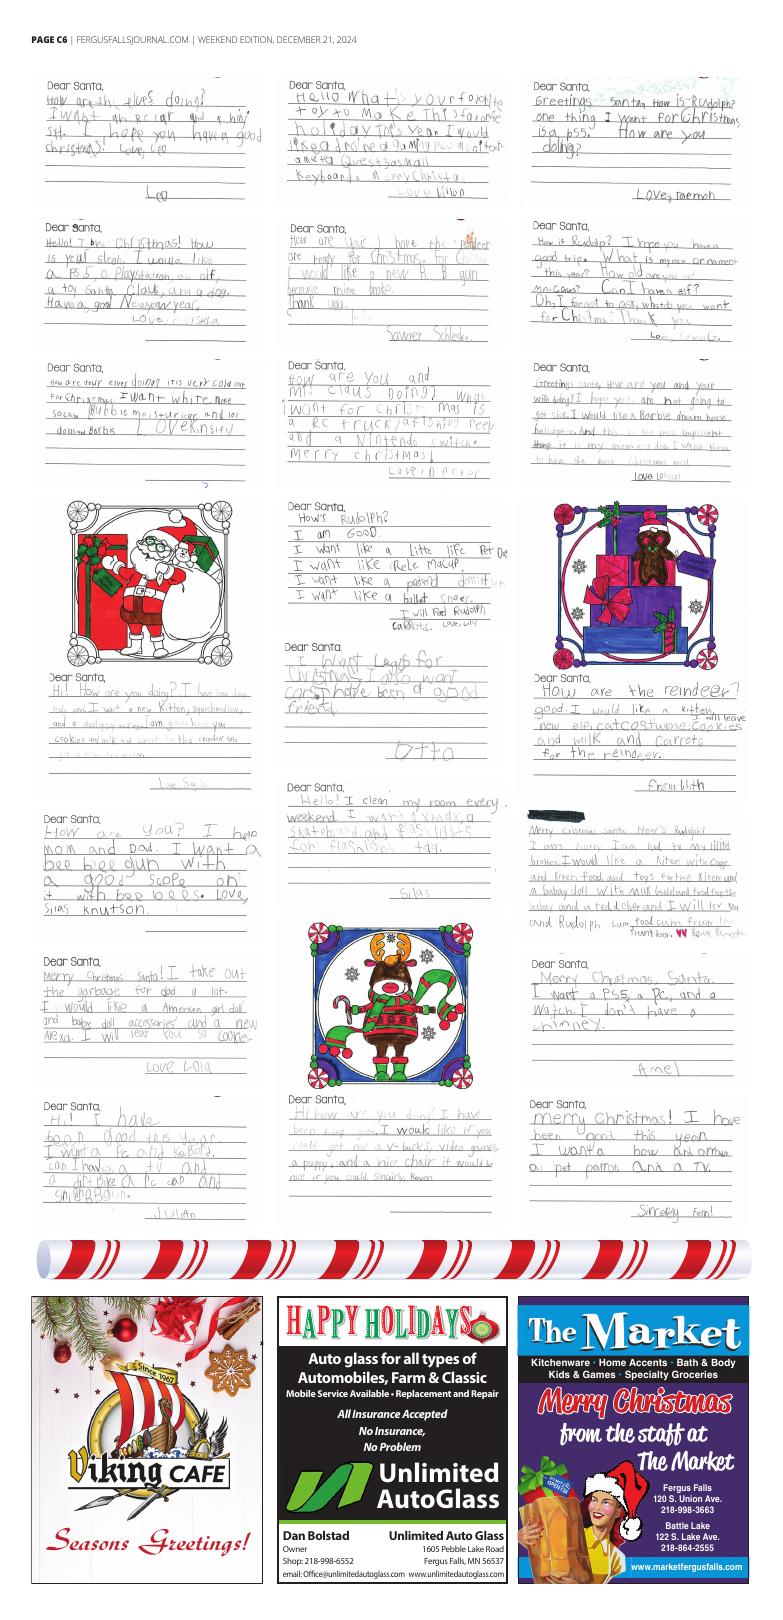 PAGE C6 | FERGUSFALLSJOURNAL.COM | WEEKEND EDITION, DECEMBER 21, 2024
Dear Santa,
How are the elves doing?
I want an RC car and a
I hope you have a good
christmas! Love, Leo
Leo
Dear Santa,
Hello What your
toy to Make This favorite
holiday This Year I would
like a gaming pc monitor
a meta Quest 3 a small
Keyboard Merry Christa
Love
Dear Santa,
Greetings Santa, How is Rudolph?
one thing I want for Christmas
is a ps5. How are you
doing?
Love,
Dear Santa,
Hello! I Christmas! How
is your sleigh. I would like
a PS5, a Playstation, an elf,
a toy Santa Claus, and a dog.
Have a good New year.
Love
Dear Santa,
How are you? I hope the reindeer
are ready for Christmas. for
I would like a new B B gun
because mine broke.
Thank you.
Sawyer
Dear Santa,
How is Rudolp? I hope you have a
good trip. What is my new ornament
this year? How old are you
Can I have a elf?
Oh, I forgot to ask, what do you want
for Chistmas? Thank you
Love,
Dear Santa,
How are your elves doing it is very cold out
For Christmas I want white nike
socks Bubble moisturiser and lol
dolls and Barbis LOVE Kinsley
Dear Santa,
How are you and
Mrs Claus Doing? What
I want for Christ mas is
a RC truck, a fishing reel
and a Nintendo switch.
Merry christmas!
Love
Dear Santa,
Greetings santa, How are you and your
wife doing? I hope you are not going to
get sick. I would like a Barbie dream house
helicopter. And this is the most important
thing it is my mom and dad. I want them
to have the best Christmas
Love
Dear Santa,
How's Rudolph?
I am GOOD.
I want like a Litte life Pet
I want like Rele Macup.
I want like a pretend dentist
I want like a ballet shoes.
I will Feed Rudolph
carrots. Love, Lily
Dear Santa,
Hi! How are you doing? I have been
I want a new Kitten, squishmallow,
and a I am gonna leave you
cookies and milk and carrots for the reindeer
Love,
Dear Santa,
I want Legos for
Christmas I also want
cars I have been a good
friend.
Otto
Dear Santa,
How are the reindeer?
good. I would like a kitten,
I will leave
new cat costume. cookies
and milk and carrots
for the reindeer.
Dear Santa,
Hello! I clean my room every
weekend. I want
skateboard, and flashlights
for flashlight tag.
Silas
Dear Santa,
How are You? I help
mom and Dad. I want a
bee bee gun with
a good scope on
it with bee bees. Love,
Silas Knutson.
Merry cristmas santa How's Rudolph?
I am sorry I am bad to my littel
brother. I would like a Kiten with cage
and Kiten food and toys for the Kiten and
a babay doll with milk and food for the
babay and a tedd ber and I will lev you
and Rudolph sum food
Dear Santa,
Merry Christmas Santa! I take out
the garbage for dad a lot.
I would like a American girl doll
and baby doll accessories and a new
Alexa. I will leav You so cookies.
Love Lola
Dear Santa,
Merry Christmas, Santa.
I want a PS5, a PC, and a
watch. I don't have a
chimney.
Amel
Dear Santa,
Hi! I have
been good this year
I want a Pc and
can I have a tv and
a dirt bike a Pc cap and
Julian
Dear Santa,
Hi how are you doing? I have
been doing good. I would like if you
could get me a v-bucks, video games,
a puppy, and a nice chair it would be
nice if you could. Sincirly, Raven
Dear Santa,
Merry Christmas! I have
been good this year
I want a bow and arrow
a pet parrot. And a TV.
Sincerely Fern!
Since 1967
Viking CAFE
Seasons Greetings!
HAPPY HOLIDAYS
Auto glass for all types of
Automobiles, Farm & Classic
Mobile Service Available • Replacement and Repair
All Insurance Accepted
No Insurance,
No Problem
Unlimited
AutoGlass
Dan Bolstad
Owner
Shop: 218-998-6552
email: Office@unlimitedautoglass.com
Unlimited Auto Glass
1605 Pebble Lake Road
Fergus Falls, MN 56537
www.unlimitedautoglass.com
The Market
Kitchenware · Home Accents · Bath & Body
Kids & Games · Specialty Groceries
Merry Christmas
from the staff at
The Market
Fergus Falls
120 S. Union Ave.
218-998-3663
Battle Lake
122 S. Lake Ave.
218-864-2555
www.marketfergusfalls.com